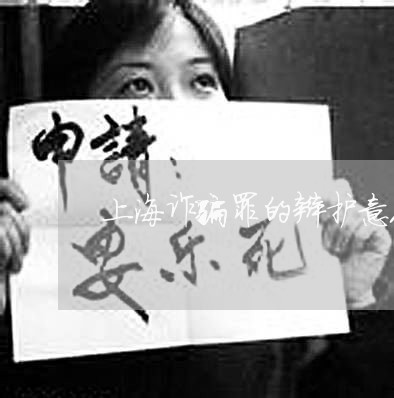 申請：
上海诈骗罪的辩护意
要乐死